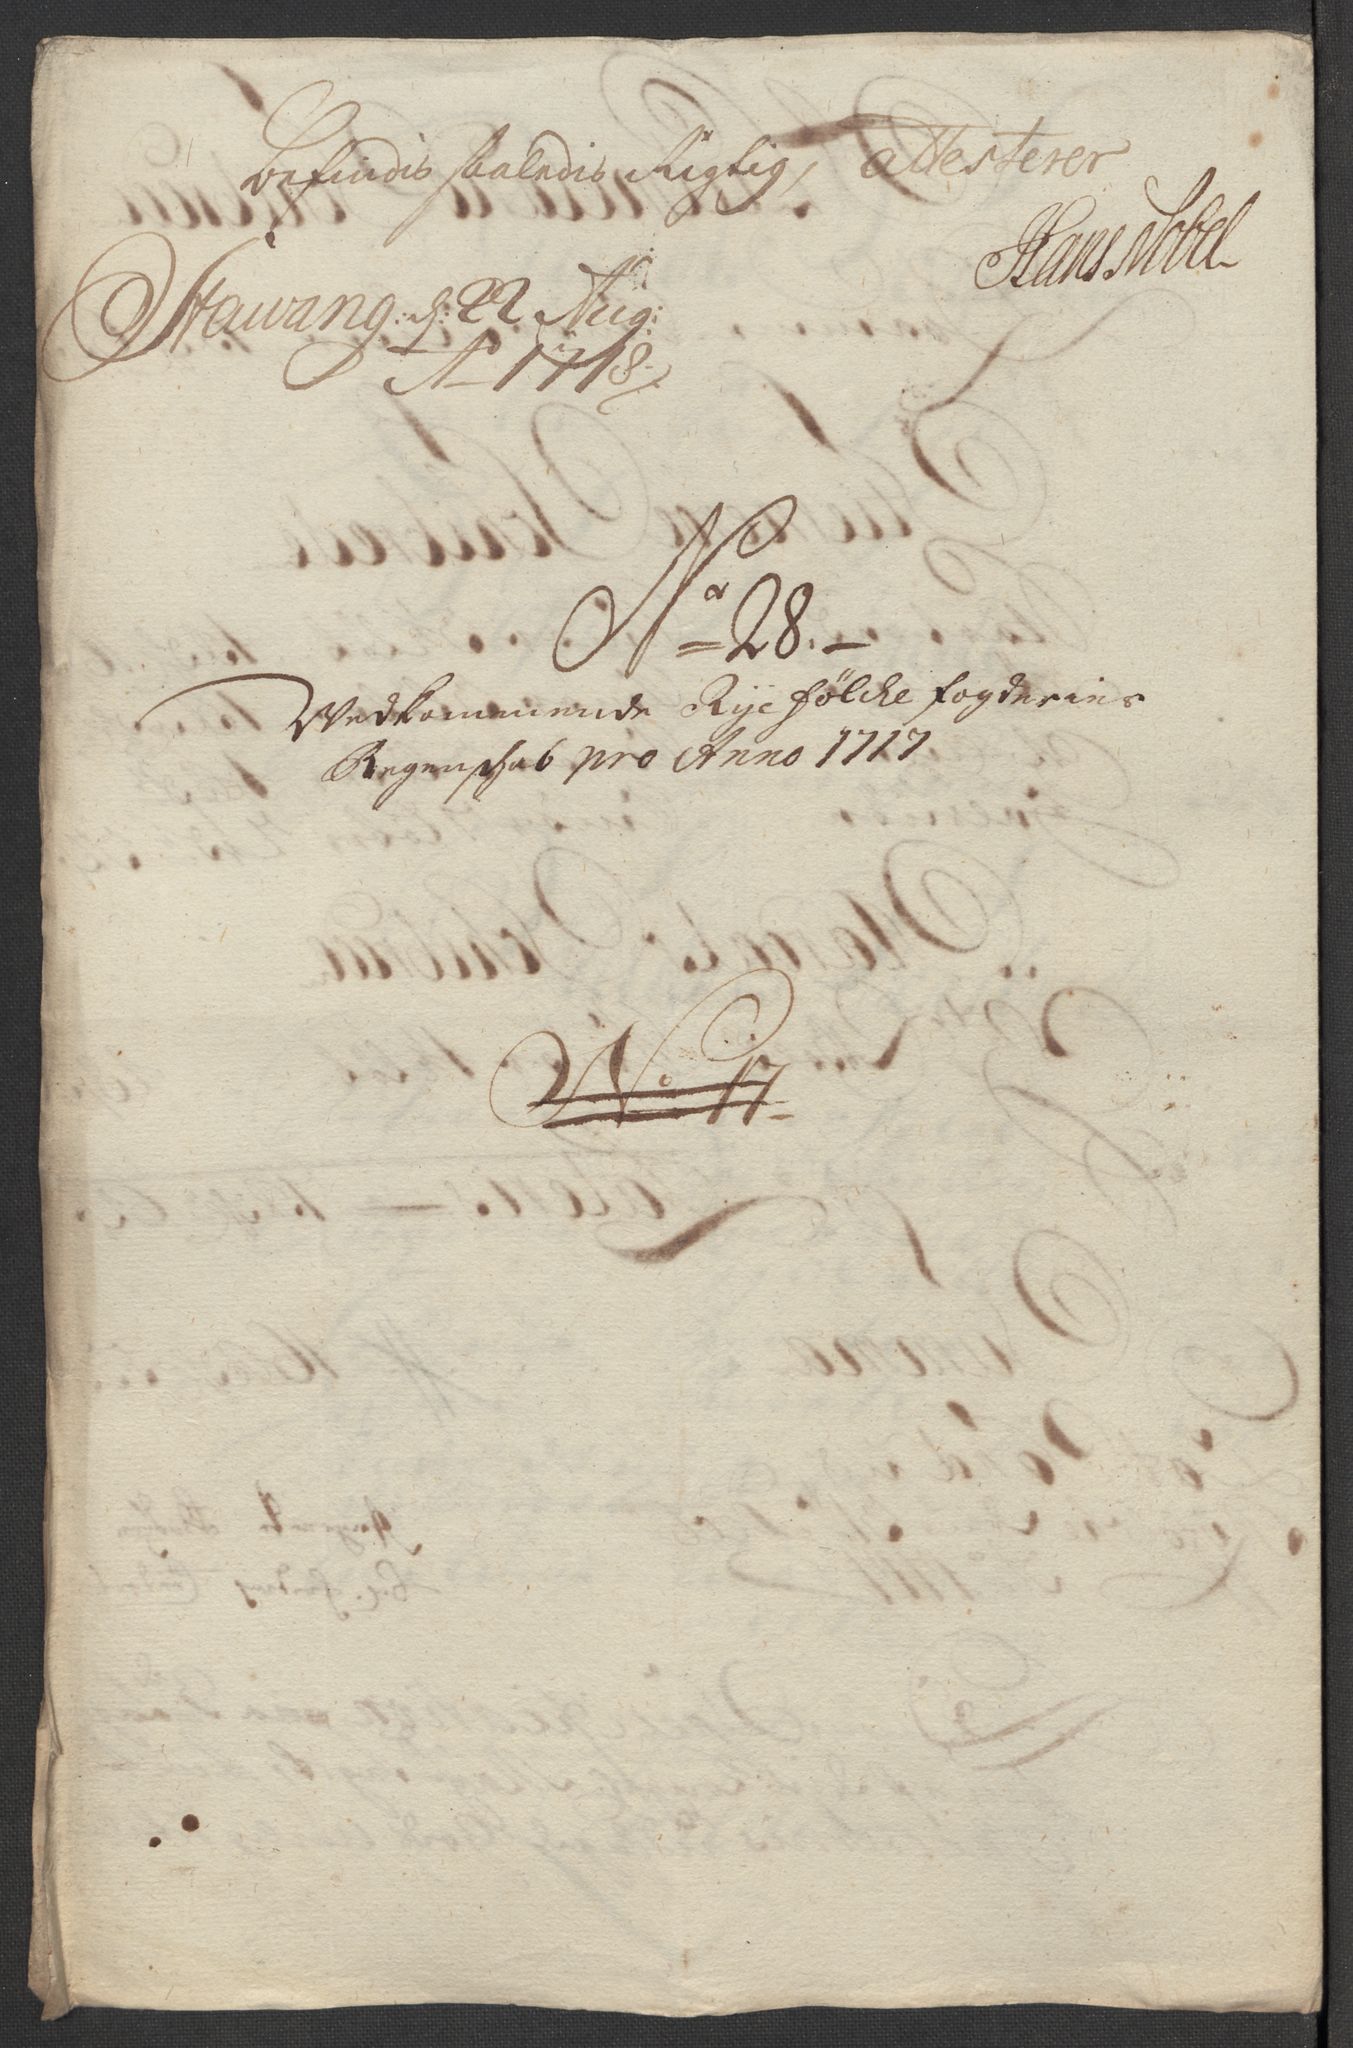 Befindis saaledis Rigtig, attesterer
Hans Nobel
Stawang: d: 22 Aug:
Ao 1718
No 28.
Vedkommende Ryefölcke fogderies
Regenschab pro Anno 1717
No 17